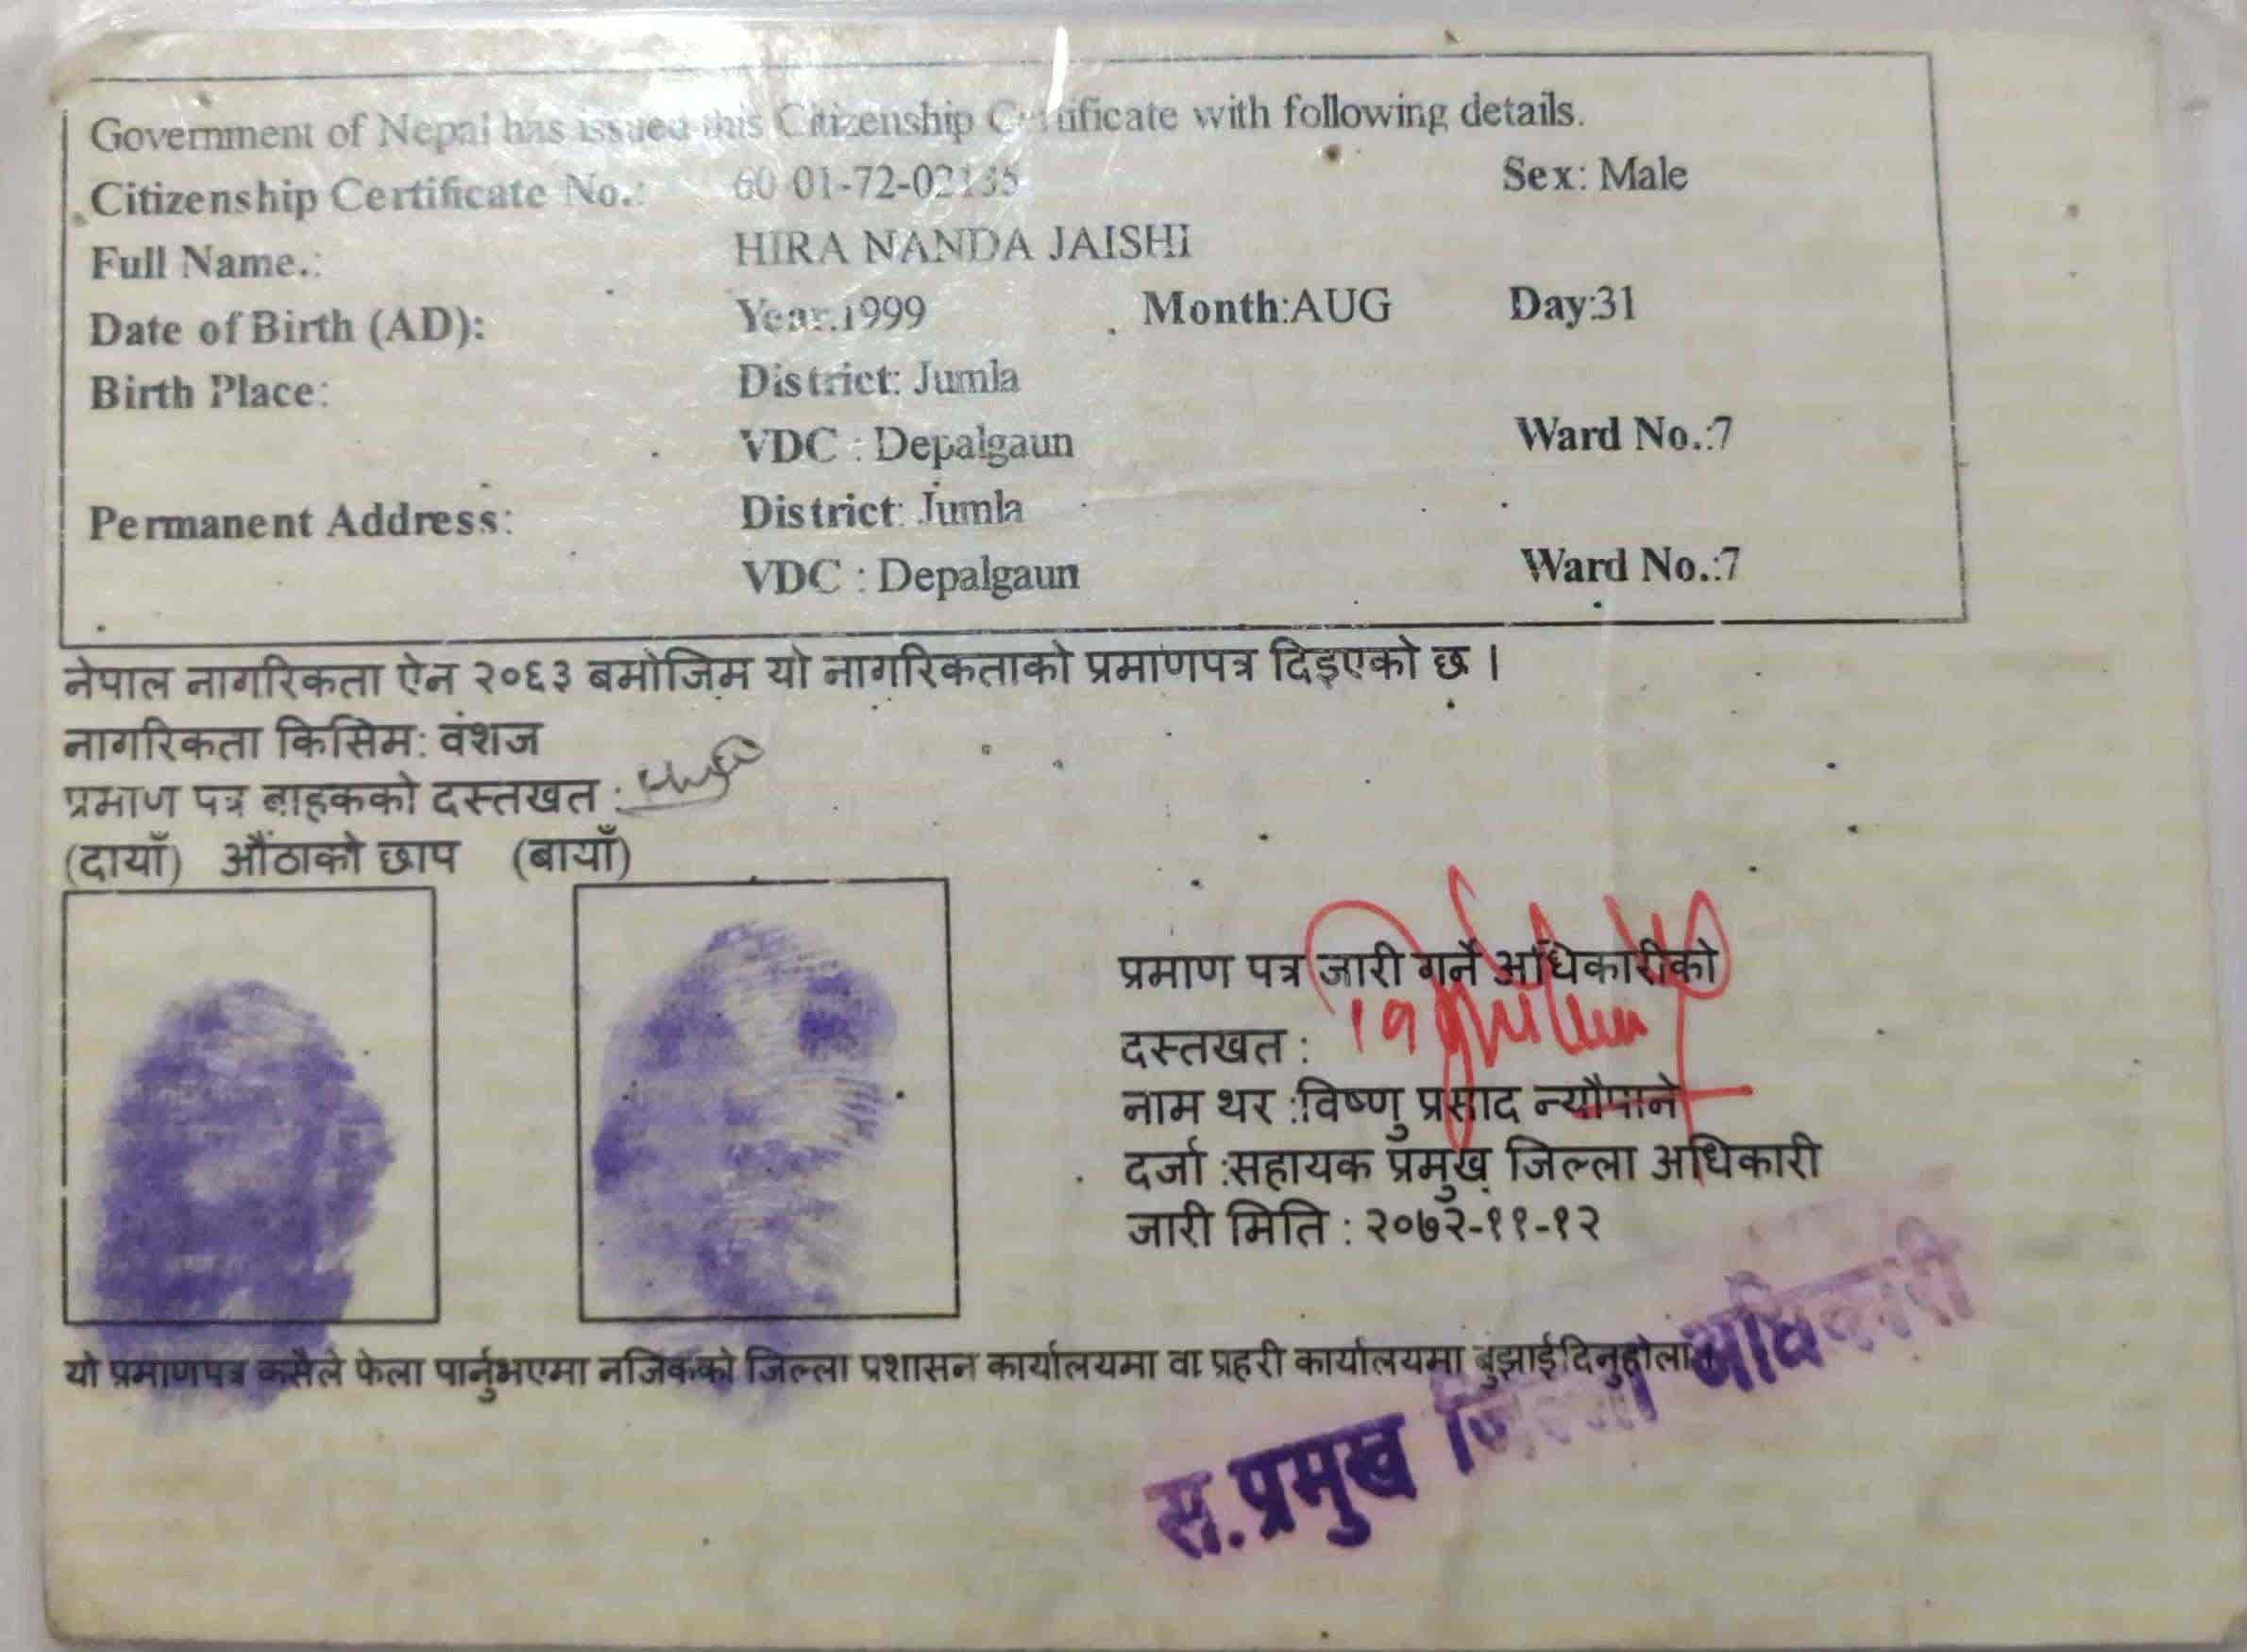 Government of Nepal has issued this Citizenship Certificate with following details.
Citizenship Certificate No.: 60-01-72-02135 Sex: Male
Full Name.: HIRA NANDA JAISHI
Date of Birth (AD): Year:1999 Month:AUG Day:31
Birth Place: District: Jumla
VDC : Depalgaun Ward No.:7
Permanent Address: District: Jumla
VDC : Depalgaun Ward No.:7
नेपाल नागरिकता ऐन २०६३ बमोजिम यो नागरिकताको प्रमाणपत्र दिइएको छ ।
नागरिकता किसिम: वंशज
प्रमाण पत्र बाहकको दस्तखत :
(दायाँ) औंठाको छाप (बायाँ)
प्रमाण पत्र जारी गर्ने अधिकारीको
दस्तखत :
नाम थर :विष्णु प्रसाद न्यौपाने
दर्जा :सहायक प्रमुख जिल्ला अधिकारी
जारी मिति : २०७२-११-१२
यो प्रमाणपत्र कसैले फेला पार्नुभएमा नजिकको जिल्ला प्रशासन कार्यालयमा वा प्रहरी कार्यालयमा बुझाईदिनुहोला
स.प्रमुख जिल्ला अधिकारी